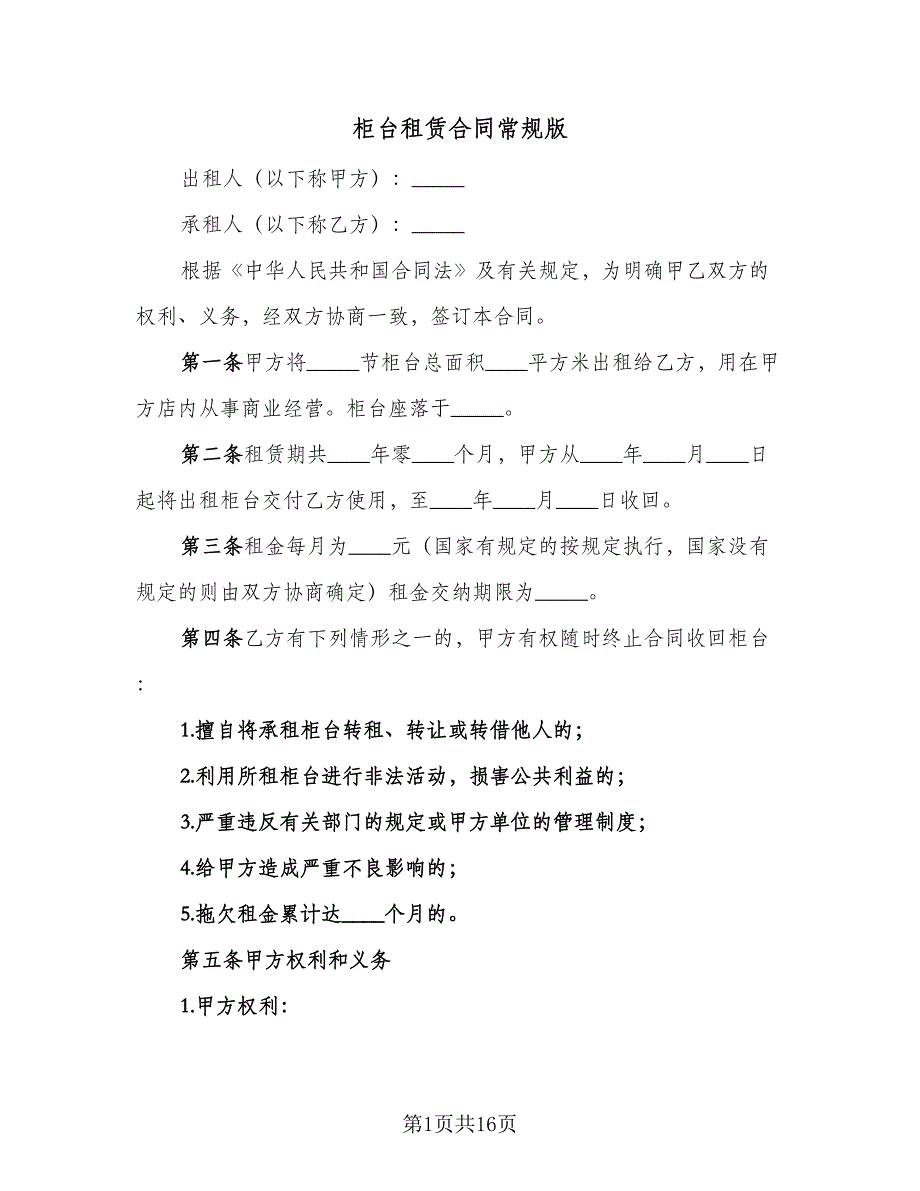 柜台租赁合同常规版
出租人（以下称甲方）：_____
承租人（以下称乙方）：_____
根据《中华人民共和国合同法》及有关规定，为明确甲乙双方的
权利、义务，经双方协商一致，签订本合同。
第一条甲方将_____节柜台总面积____平方米出租给乙方，用在甲
方店内从事商业经营。柜台座落于_____。
第二条租赁期共____年零____个月，甲方从____年____月____日
起将出租柜台交付乙方使用，至____年____月____日收回。
第三条租金每月为____元（国家有规定的按规定执行，国家没有
规定的则由双方协商确定）租金交纳期限为_____。
第四条乙方有下列情形之一的，甲方有权随时终止合同收回柜台
：
1.擅自将承租柜台转租、转让或转借他人的；
2.利用所租柜台进行非法活动，损害公共利益的；
3.严重违反有关部门的规定或甲方单位的管理制度；
4.给甲方造成严重不良影响的；
5.拖欠租金累计达____个月的。
第五条甲方权利和义务
1.甲方权利：
第1页共16页